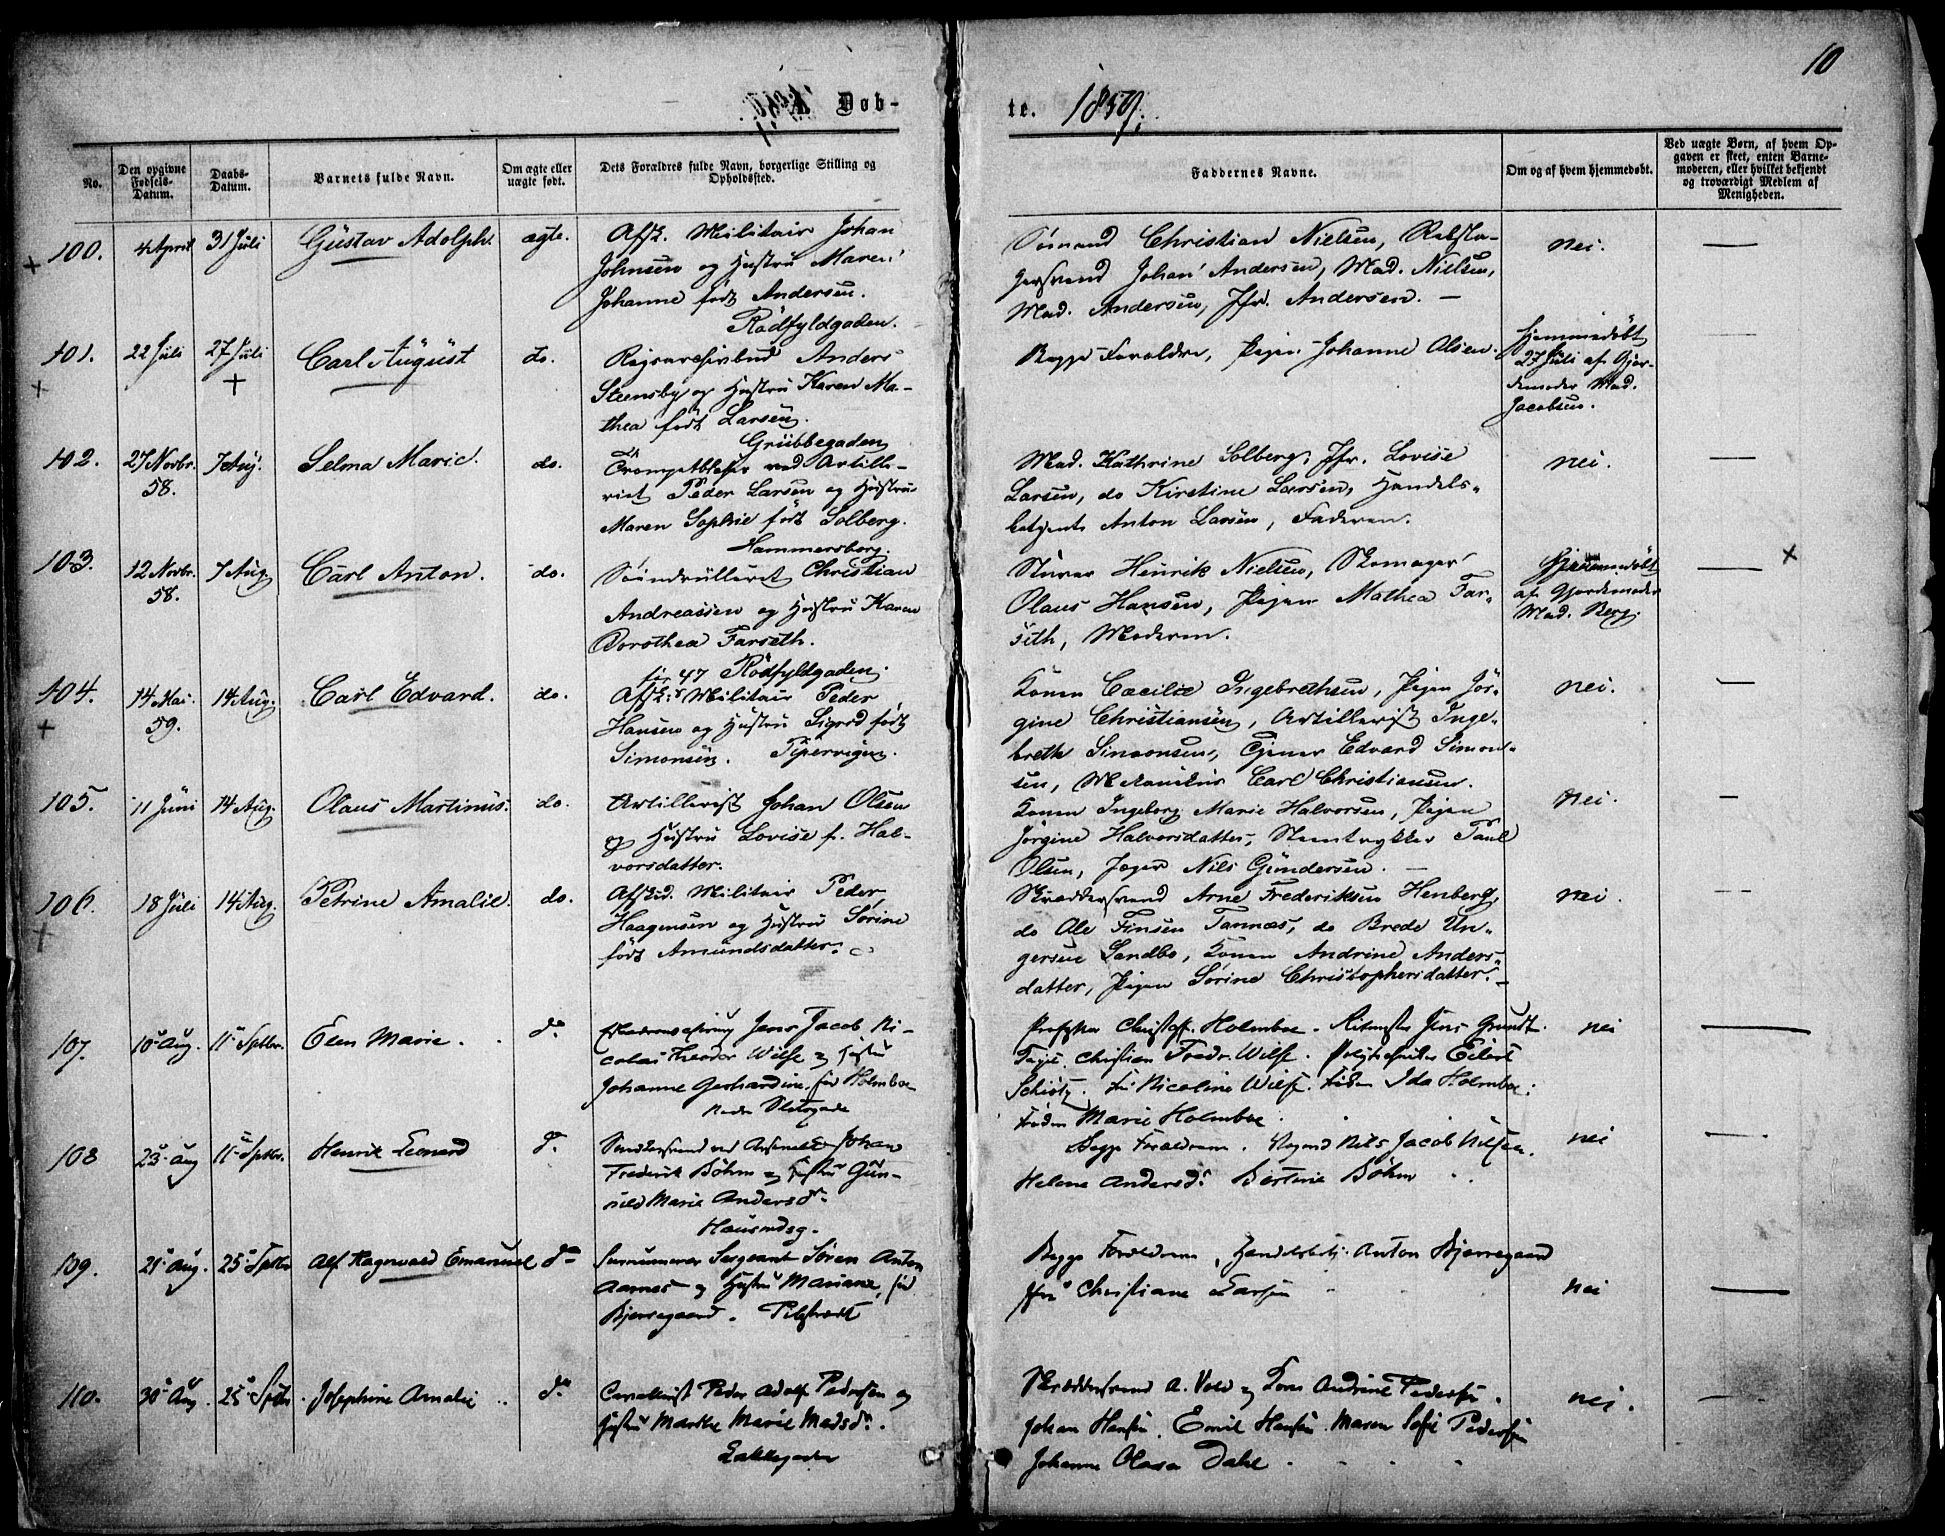 10
Døb-
te. 1859.
No.
Den opgivne Fødsels-Datum.
Daabs-Datum.
Barnets fulde Navn.
Om ægte eller uægte født.
Dets Forældres fulde Navn, borgerlige Stilling og Opholdssted.
Faddernes Navne.
Om og af hvem hjemmedøbt.
Ved uægte Børn, af hvem Op-
gaven er skeet, enten Barne-
moderen, eller hvilket bekjendt
og troværdigt Medlem af
Menigheden.
100. 4 April 31 Juli Gustav Adolph. ægte.
Afsk. Militair Johan
Johnsen og Hustru Maren
Johanne født Andersen.
Rødfyldgaden.
Sømand Christian Nielsen, Rebsla-
gersvend Johan Andersen, Mad. Nielsen,
Mad. Andersen, Jfr. Andersen. —
nei. —
101. 22 Juli 27 Juli + Carl August do.
Rigsarchivbud Anders
Steensby og Hustru Karen Ma-
thea født Larsen.
Grubbegaden
Begge Forældre, Pigen Johanne Olsen.
Hjemmedøbt
27 Juli af Gjor-
demoder Mad.
Jacobsen.
102. 27 Novbr. 58. 7 Aug. Selma Marie. do.
Trompetblæser ved Artille-
riet Peder Larsen og Hustru
Maren Sophie født Solberg.
Hammersborg.
Mad. Kathrine Solberg, Jfr. Lovise
Larsen, do Kirstine Larsen, Handels-
betjent Anton Larsen, Faderen.
nei. —
103. 12 Novbr. 58. 7 Aug Carl Anton. do.
Christian
Andreassen og Hustru Karen
Dorothea Farseth.
47 Rødfyldgaden.
Sturer Henrik Nielsen, Skomager
Olaus Hansen, Pigen Mathea Far-
seth, Moderen.
Hjemmedøbt
af Gjordemoder
Mad. Berg.
— ×
104. 14 Mai 59. 14 Aug. Carl Edvard. do.
Afsk. Militair Peder
Hansen og Hustru Sigrid født
Simonsen. Pipervigen.
Konen Cæcilie Ingebrethsen, Pigen Jør-
gine Christiansen, Artillerist Inge-
breth Simonsen, Tjener Edvard Simon-
sen, Mekanikus Carl Christiansen.
nei. —
105. 11 Juni 14 Aug. Olaus Martinus. do.
Artillerist Johan Olsen
og Hustru Lovise f. Hal-
vorsdatter.
Konen Ingeborg Marie Halvorsen, Pigen
Jørgine Halvorsdatter, Stentrykker Paul
Olsen, Jæger Nils Gundersen. —
nei. —
106. 18 Juli 14 Aug. Petrine Amalie. do.
Afskd. Militair Peder
Haagensen og Hustru Sørine
født Amundsdatter.
Skræddersvend Arne Frederiksen Henberg,
do Ole Finsen Tannæs, do Brede Un-
gersen Sandbo, Konen Andrine Anders-
datter, Pigen Sørine Christophersdatter. —
nei. —
107. 10 Aug. 11 Septbr. Elen Marie. do
Jens Jacob Ni-
colai Theodor Wilse og Hustru
Johanne Gerhardine født Holmboe
Nedre Slotsgade
Christoff. Holmboe. Ritmester Jens Grundt.
Christian Fredr. Wilse. Eilert
Schiøtz. Fru Nicoline Wilse. Frøken Ida Holmboe.
Frøken Marie Holmboe.
nei —
108 23 Aug 11 Septbr. Henrik Leonard do
Johan
Frederik Bøhm og Hustru Gun-
nild Marie Andersdr.
Hausmdsg.
Begge Forældrene. Nils Jacob Nilsen.
Helene Andersdr. Bertine Bøhm
nei —
109. 21 Aug. 25 Septbr Alf Ragnvald Emanuel do
Surnumerær Sergeant Søren Anton
Aarnes og Hustru Mariane, født
Bjerregaard. Pilestrædt
Begge Forældrene, Handelsbetj. Anton Bjerregaard
Jfr. Christiane Larsen
nei —
110. 30 Aug 25 Septbr Josephine Amalie do
Cavallerist Peder Adolf Pedersen og
Hustru Marthe Marie Madsdr.
Lakkegaden
Skræddersvend A. Vold og Kone Andrine Pedersen.
Johan Hansen. Emil Hansen. Maren Sofie Pedersen
Johanne Olava Dahl
nei. —